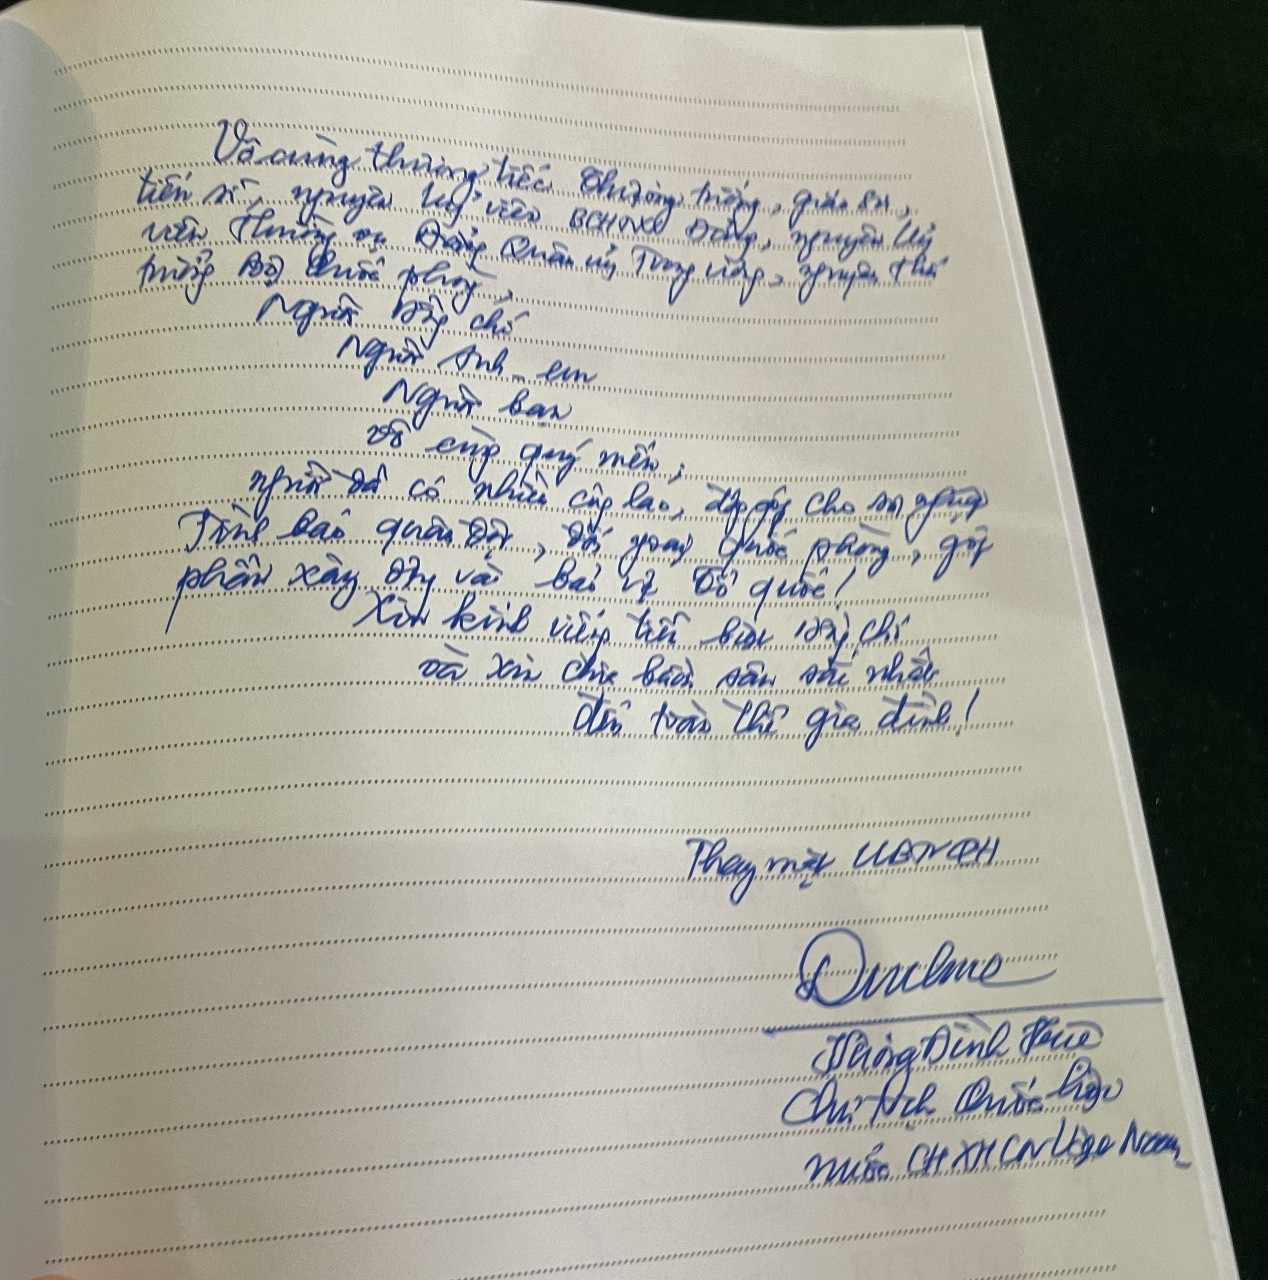 Vô cùng thương tiếc Thượng tướng, giáo sư,
tiến sĩ, nguyên Uỷ viên BCHTW Đảng, nguyên Uỷ
viên Thường vụ Đảng Quân uỷ Trung ương, nguyên Thứ
trưởng Bộ Quốc phòng,
Người đồng chí
Người Anh em
Người bạn
vô cùng quý mến,
người đã có nhiều công lao, đóng góp cho sự nghiệp
Tình báo quân đội, đối ngoại quốc phòng, góp
phần xây dựng và bảo vệ Tổ quốc!
Xin kính viếng tiễn biệt đồng chí
và xin chia buồn sâu sắc nhất
đến toàn thể gia đình!
Thay mặt UBTVQH
Vương Đình Huệ
Chủ tịch Quốc hội
nước CHXHCN Việt Nam